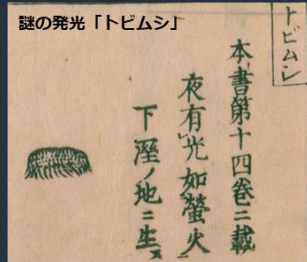 謎の発光「トビムシ」
トビムシ
本書第十四巻ニ載
夜有光如螢火
下溼ノ地ニ生ス